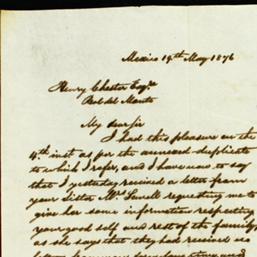 Mexico 19th May 1876
Henry Chester Esqre
Real del Monte
My dear Sir
I had this pleasure on the
4th inst as per the annexed duplicate
to which I refer, and I have now to say
that I yesterday received a letter from
your Sister Mrs Sewell requesting me to
give her some information respecting
your good self and rest of the family,
as she says that they had received no
letters from you